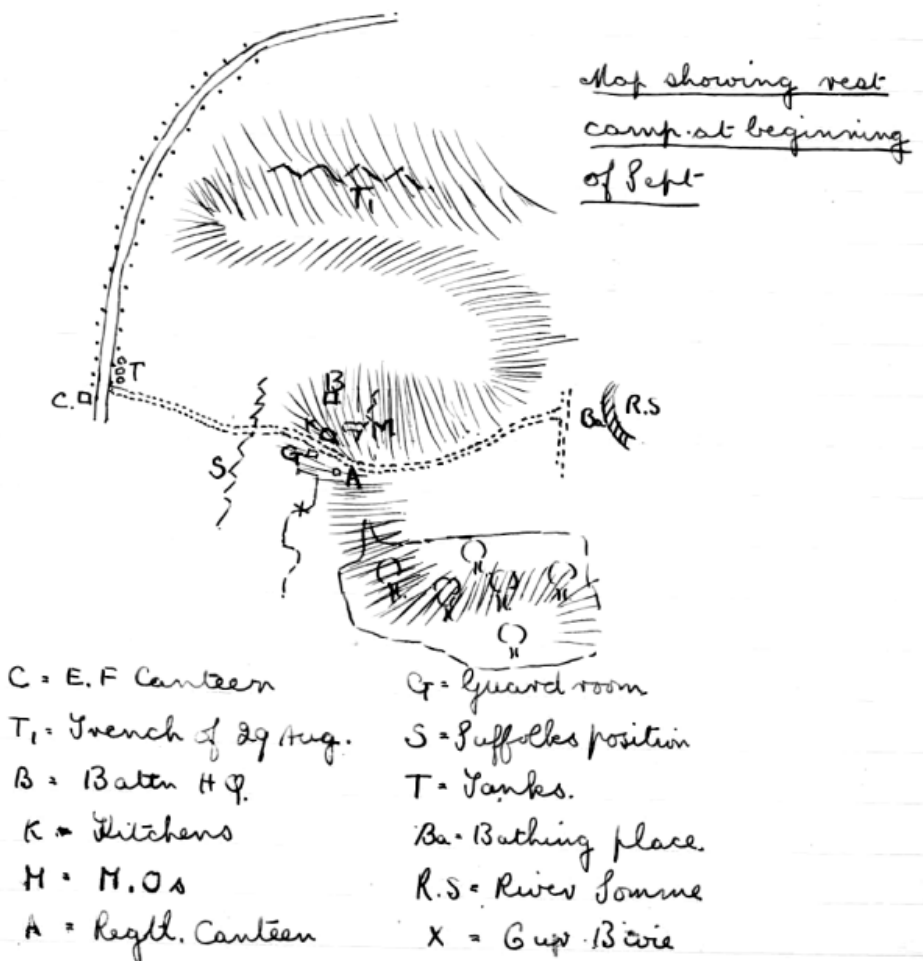 Map showing rest
camp at beginning
of Sept
T1
T
B
C.
K
M
Ba
R.S
G
S
A
X
C = E.F Canteen
T1 = Trench of 29 Aug.
B = Battn HQ.
K = Kitchens
M = M.Os
A = Regtl. Canteen
G = Guard room
S = Suffolks position
T = Tanks.
Ba = Bathing place.
R.S = River Somme
X = Bivie